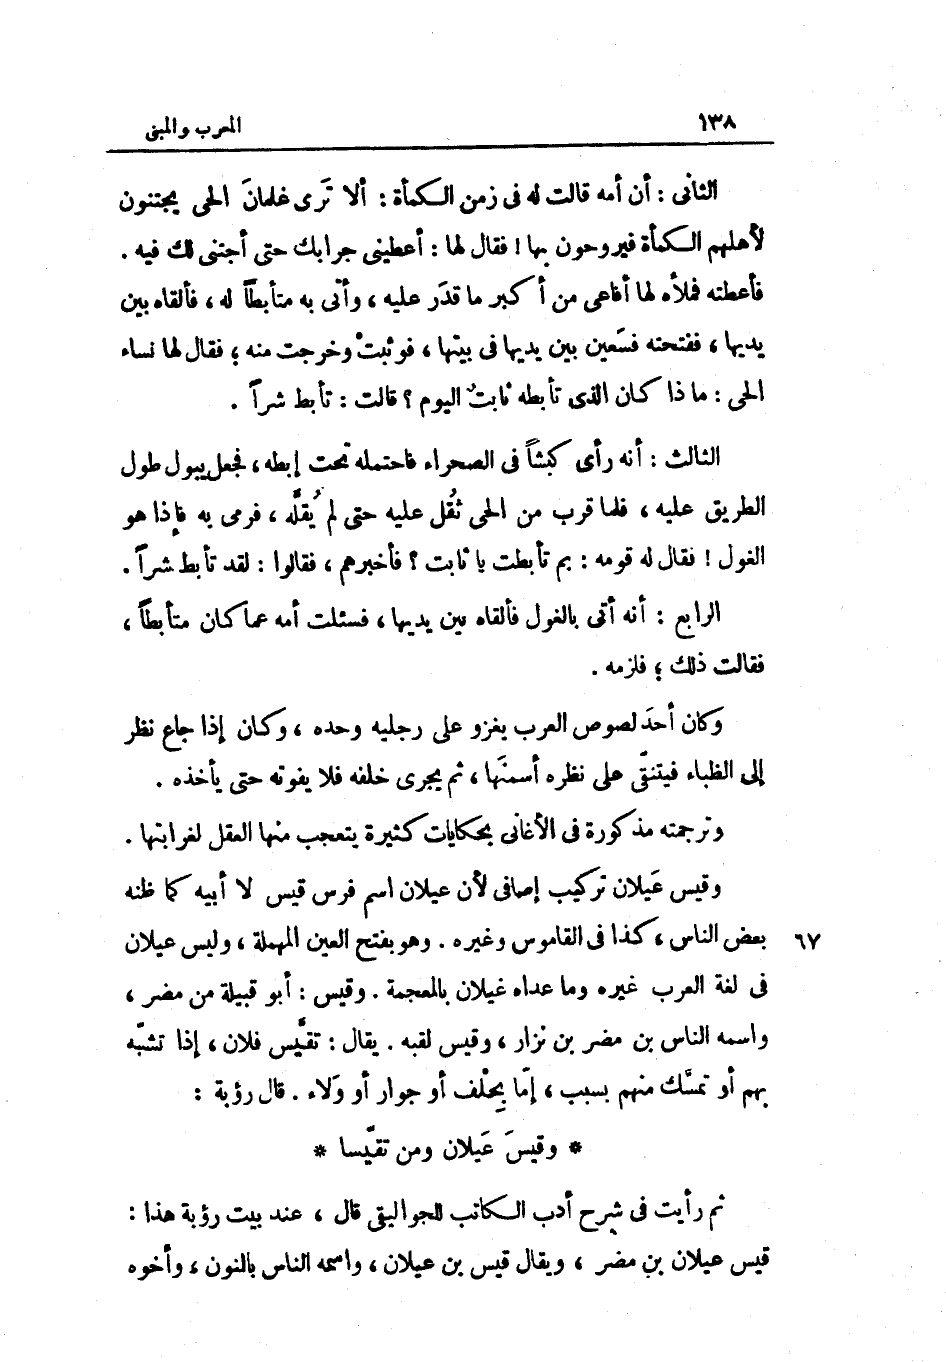 ١٣٨ المعرب والمبنى
الثانى : أن أمه قالت له فى زمن الكمأة : ألا تَرى غلمانَ الحى يجتنون
لأهلهم الكمأة فيروحون بها ! فقال لها : أعطينى جرابك حتى أجتنى لك فيه .
فأعطته فملأه لها أفاعى من أكبر ما قدَر عليه ، وأتى به متأبطاً له ، فألقاه بين
يديها ، ففتحته فسَعين بين يديها فى بيتها ، فوثبتْ وخرجت منه ؛ فقال لها نساء
الحى : ماذا كان الذى تأبطه ثابتٌ اليوم ؟ قالت : تأبط شراً .
الثالث : أنه رأى كبشاً فى الصحراء فاحتمله تحت إبطه ، فجعل يبول طول
الطريق عليه ، فلما قرب من الحى ثقُل عليه حتى لم يُقلَّه ، فرمى به فإذا هو
الغول ! فقال له قومه : بم تأبطت يا ثابت ؟ فأخبرهم ، فقالوا : لقد تأبط شراً .
الرابع : أنه أتى بالغول فألقاه بين يديها ، فسئلت أمه عما كان متأبطاً ،
فقالت ذلك ؛ فلزمه .
وكان أحدَ لصوص العرب يغزو على رجليه وحده ، وكان إذا جاع نظر
إلى الظباء فيتنقّى على نظره أسمنَها ، ثم يجرى خلفه فلا يفوته حتى يأخذه .
وترجمته مذكورة فى الأغانى بحكايات كثيرة يتعجب منها العقل لغرابتها .
وقيس عَيلان تركيب إضافى لأن عيلان اسم فرس قيس لا أبيه كما ظنه
بعض الناس ، كذا فى القاموس وغيره . وهو بفتح العين المهملة ، وليس عيلان ٦٧
فى لغة العرب غيره وما عداه غيلان بالمعجمة . وقيس : أبو قبيلة من مضر ،
واسمه الناس بن مضر بن نزار ، وقيس لقبه . يقال : تقيَّس فلان ، إذا تشبّه
بهم أو تمسَّك منهم بسبب ، إمّا بحِلْف أو جوار أو وَلاء . قال رؤبة :
* وقيسَ عَيلان ومن تقيّسا *
ثم رأيت فى شرح أدب الكاتب للجواليقى قال ، عند بيت رؤبة هذا :
قيس عيلان بن مضر ، ويقال قيس بن عيلان ، واسمه الناس بالنون ، وأخوه